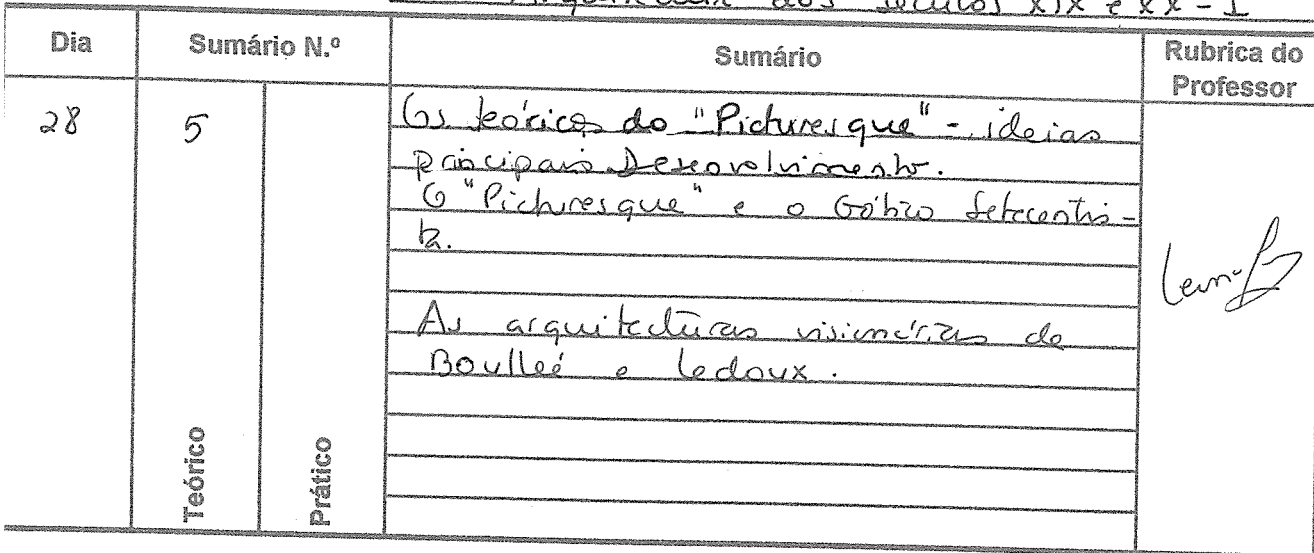 Arquitectura dos séculos XIX e XX - I
Dia
Sumário N.º
Sumário
Rubrica do
Professor
28
5
Os teóricos do "Picturesque" - ideias
principais Desenvolvimento.
O "Picturesque" e o Gótico Setecentis-
ta.
As arquitecturas visionárias de
Boulleé e Ledoux.
Teórico
Prático